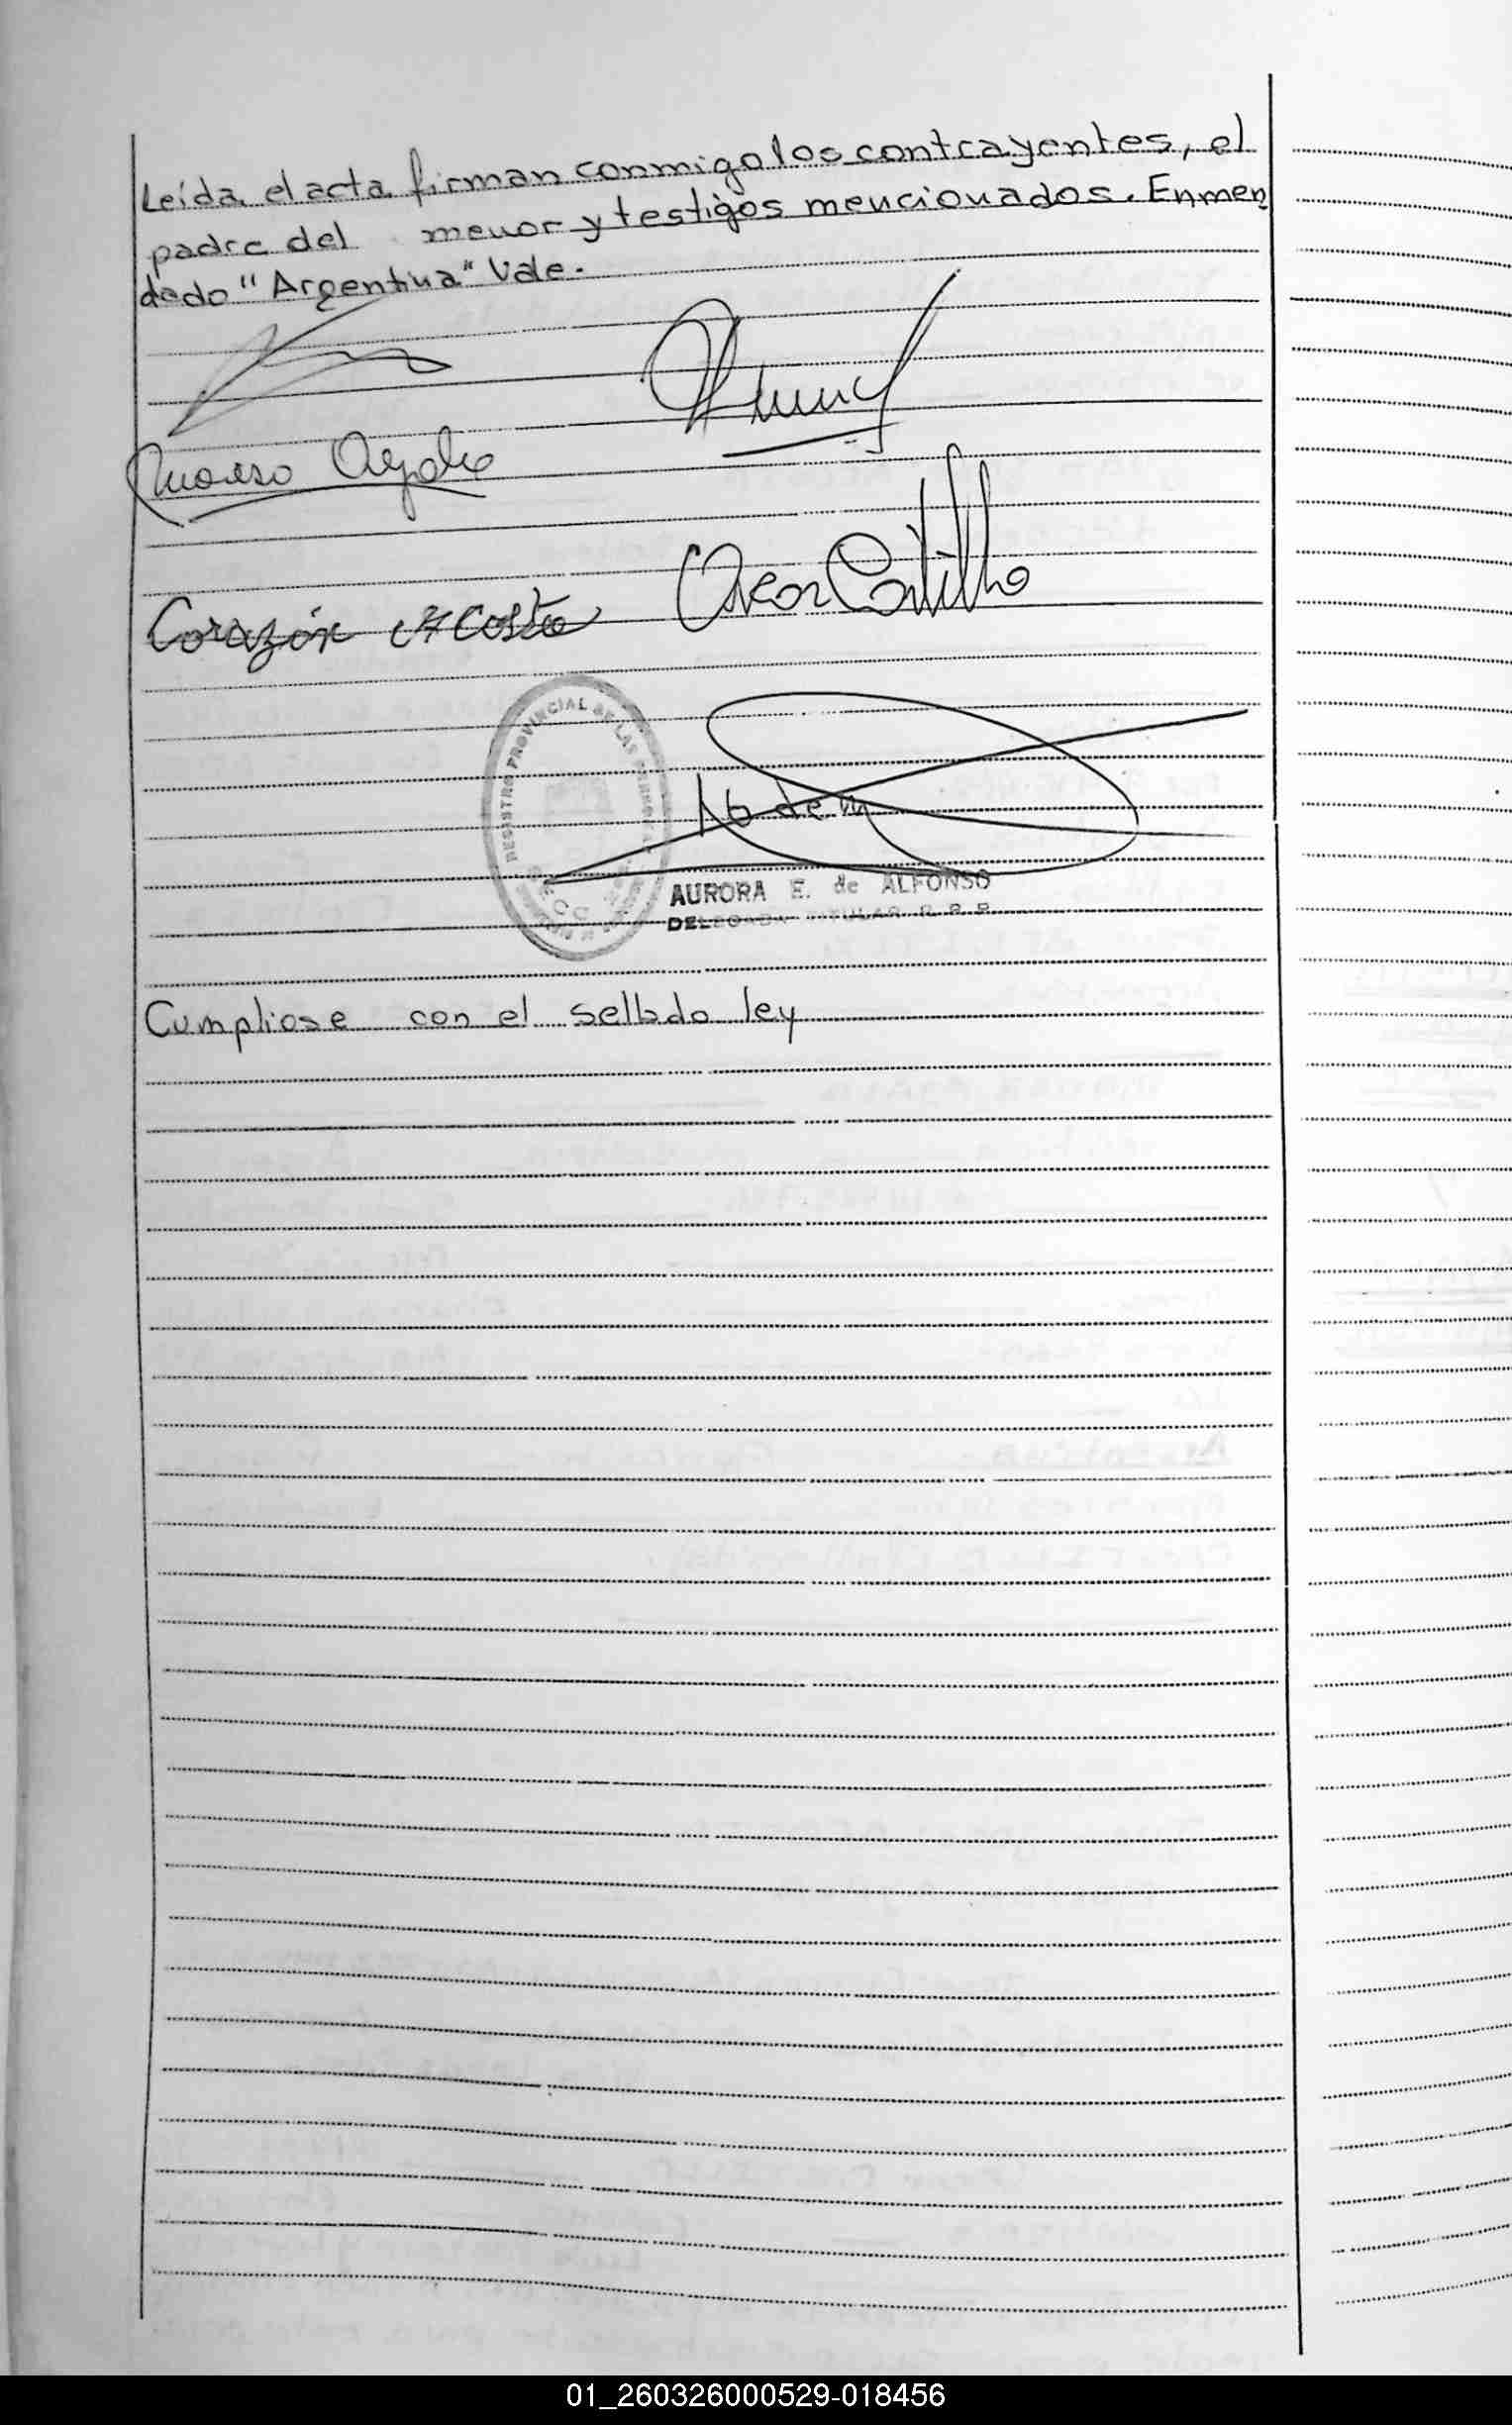 Leída el acta firman conmigo los contrayentes, el
padre del menor y testigos mencionados. Enmen
dado "Argentina" Vale.
Corazón Acosta
Oscar Castillo
REGISTRO PROVINCIAL DE LAS PERSONAS
AURORA E. de ALFONSO
DELEGADA TITULAR R. P. P.
Cumpliose con el sellado ley
01_260326000529-018456